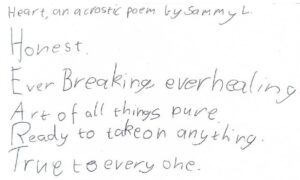 Heart, an acrostic poem by Sammy L.
Honest.
Ever Breaking everhealing
Art of all things pure.
Ready to takeon anything.
True to every one.